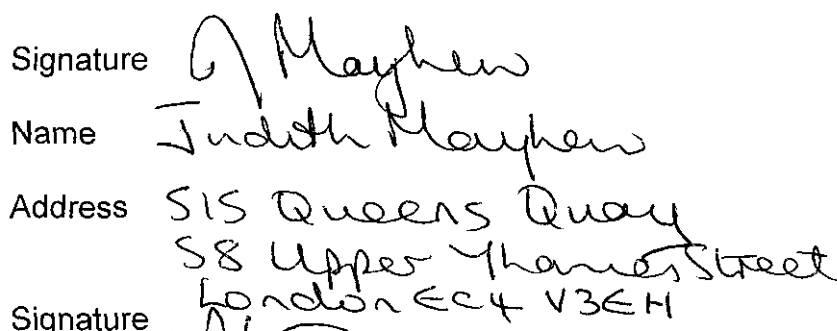 Signature J Mayhew
Name Judith Mayhew
Address 515 Queens Quay
58 Upper Thames Street
London EC4 V3EH
Signature